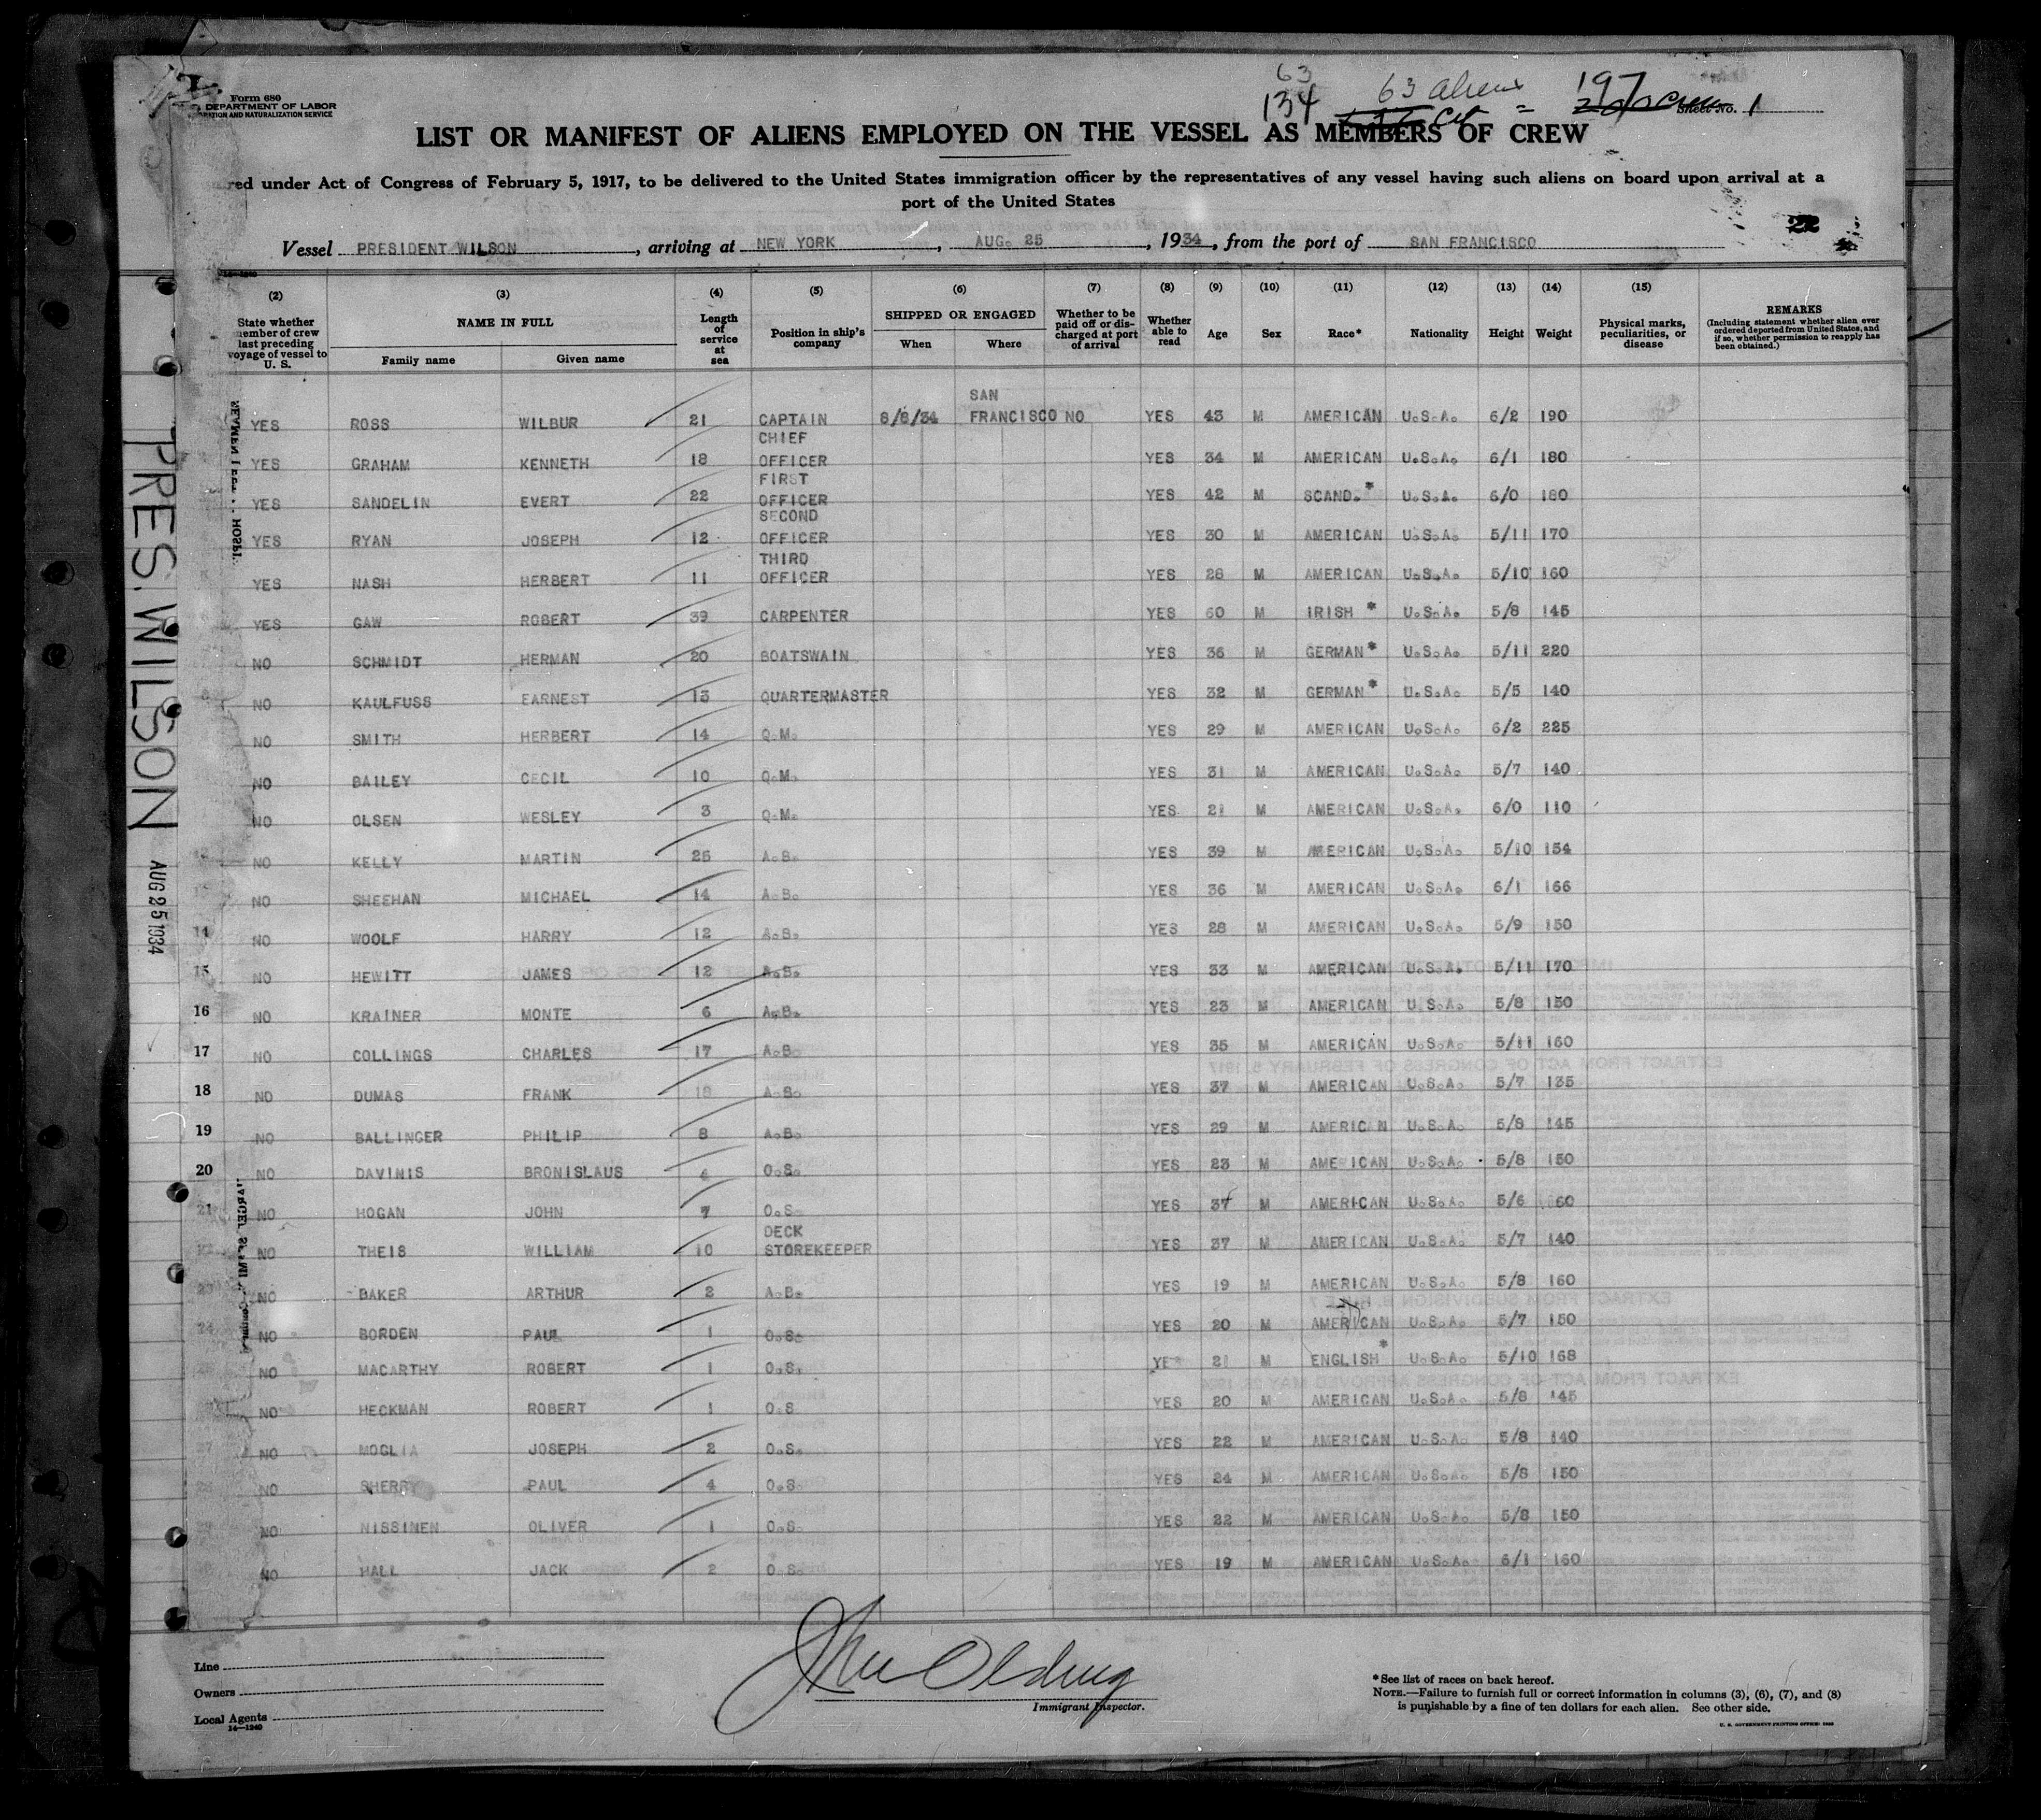 63
134
63 aliens
cit = 197
Sheet No. 1
Form 680
DEPARTMENT OF LABOR
RATION AND NATURALIZATION SERVICE
LIST OR MANIFEST OF ALIENS EMPLOYED ON THE VESSEL AS MEMBERS OF CREW
red under Act of Congress of February 5, 1917, to be delivered to the United States immigration officer by the representatives of any vessel having such aliens on board upon arrival at a
port of the United States
22
Vessel PRESIDENT WILSON, arriving at NEW YORK, AUG. 25, 1934, from the port of SAN FRANCISCO
14-1240
(2) (3) (4) (5) (6) (7) (8) (9) (10) (11) (12) (13) (14) (15)
State whether member of crew last preceding voyage of vessel to U. S.
NAME IN FULL
Family name Given name
Length of service at sea
Position in ship's company
SHIPPED OR ENGAGED
When Where
Whether to be paid off or discharged at port of arrival
Whether able to read
Age Sex Race* Nationality Height Weight
Physical marks, peculiarities, or disease
REMARKS
(Including statement whether alien ever ordered deported from United States, and if so, whether permission to reapply has been obtained.)
YES ROSS WILBUR 21 CAPTAIN 8/8/34 SAN FRANCISCO NO YES 43 M AMERICAN U.S.A. 6/2 190
YES GRAHAM KENNETH 18 CHIEF OFFICER YES 34 M AMERICAN U.S.A. 6/1 180
YES SANDELIN EVERT 22 FIRST OFFICER YES 42 M SCAND.* U.S.A. 6/0 180
YES RYAN JOSEPH 12 SECOND OFFICER YES 30 M AMERICAN U.S.A. 5/11 170
YES NASH HERBERT 11 THIRD OFFICER YES 28 M AMERICAN U.S.A. 5/10 160
YES GAW ROBERT 39 CARPENTER YES 60 M IRISH * U.S.A. 5/8 145
NO SCHMIDT HERMAN 20 BOATSWAIN YES 36 M GERMAN* U.S.A. 5/11 220
NO KAULFUSS EARNEST 13 QUARTERMASTER YES 32 M GERMAN* U.S.A. 5/5 140
NO SMITH HERBERT 14 Q.M. YES 29 M AMERICAN U.S.A. 6/2 225
NO BAILEY CECIL 10 Q.M. YES 31 M AMERICAN U.S.A. 5/7 140
NO OLSEN WESLEY 3 Q.M. YES 21 M AMERICAN U.S.A. 6/0 110
NO KELLY MARTIN 25 A.B. YES 39 M AMERICAN U.S.A. 5/10 154
NO SHEEHAN MICHAEL 14 A.B. YES 36 M AMERICAN U.S.A. 6/1 166
14 NO WOOLF HARRY 12 A.B. YES 28 M AMERICAN U.S.A. 5/9 150
15 NO HEWITT JAMES 12 A.B. YES 33 M AMERICAN U.S.A. 5/11 170
16 NO KRAINER MONTE 6 A.B. YES 23 M AMERICAN U.S.A. 5/8 150
17 NO COLLINGS CHARLES 17 A.B. YES 35 M AMERICAN U.S.A. 5/11 160
18 NO DUMAS FRANK 18 A.B. YES 37 M AMERICAN U.S.A. 5/7 135
19 NO BALLINGER PHILIP 8 A.B. YES 29 M AMERICAN U.S.A. 5/8 145
20 NO DAVINIS BRONISLAUS O.S. YES 23 M AMERICAN U.S.A. 5/8 150
21 NO HOGAN JOHN 7 O.S. YES M AMERICAN U.S.A. 5/6 60
NO THEIS WILLIAM 10 DECK STOREKEEPER YES 37 M AMERICAN U.S.A. 5/7 140
23 NO BAKER ARTHUR 2 A.B. YES 19 M AMERICAN U.S.A. 5/8 160
24 NO BORDEN PAUL 1 O.S. YES 20 M AMERICAN U.S.A. 5/7 150
NO MACARTHY ROBERT 1 O.S. YES 21 M ENGLISH * U.S.A. 5/10 168
NO HECKMAN ROBERT 1 O.S YES 20 M AMERICAN U.S.A. 5/8 145
27 NO MOGLIA JOSEPH 2 O.S. YES 22 M AMERICAN U.S.A. 5/8 140
NO SHERRY PAUL 4 O.S. YES 24 M AMERICAN U.S.A. 5/8 150
NO NISSINEN OLIVER 1 O.S. YES 22 M AMERICAN U.S.A. 5/8 150
NO HALL JACK 2 O.S. YES 19 M AMERICAN U.S.A. 6/1 160
PRES. WILSON
AUG 25 1934
Line
Owners
Local Agents
14-1240
Immigrant Inspector.
*See list of races on back hereof.
NOTE.—Failure to furnish full or correct information in columns (3), (6), (7), and (8)
is punishable by a fine of ten dollars for each alien. See other side.
U. S. GOVERNMENT PRINTING OFFICE: